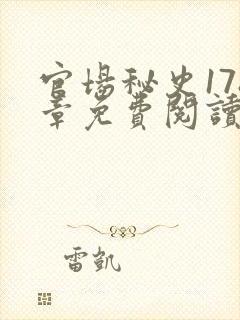 官場秘史17
章免費閱讀
雷凱